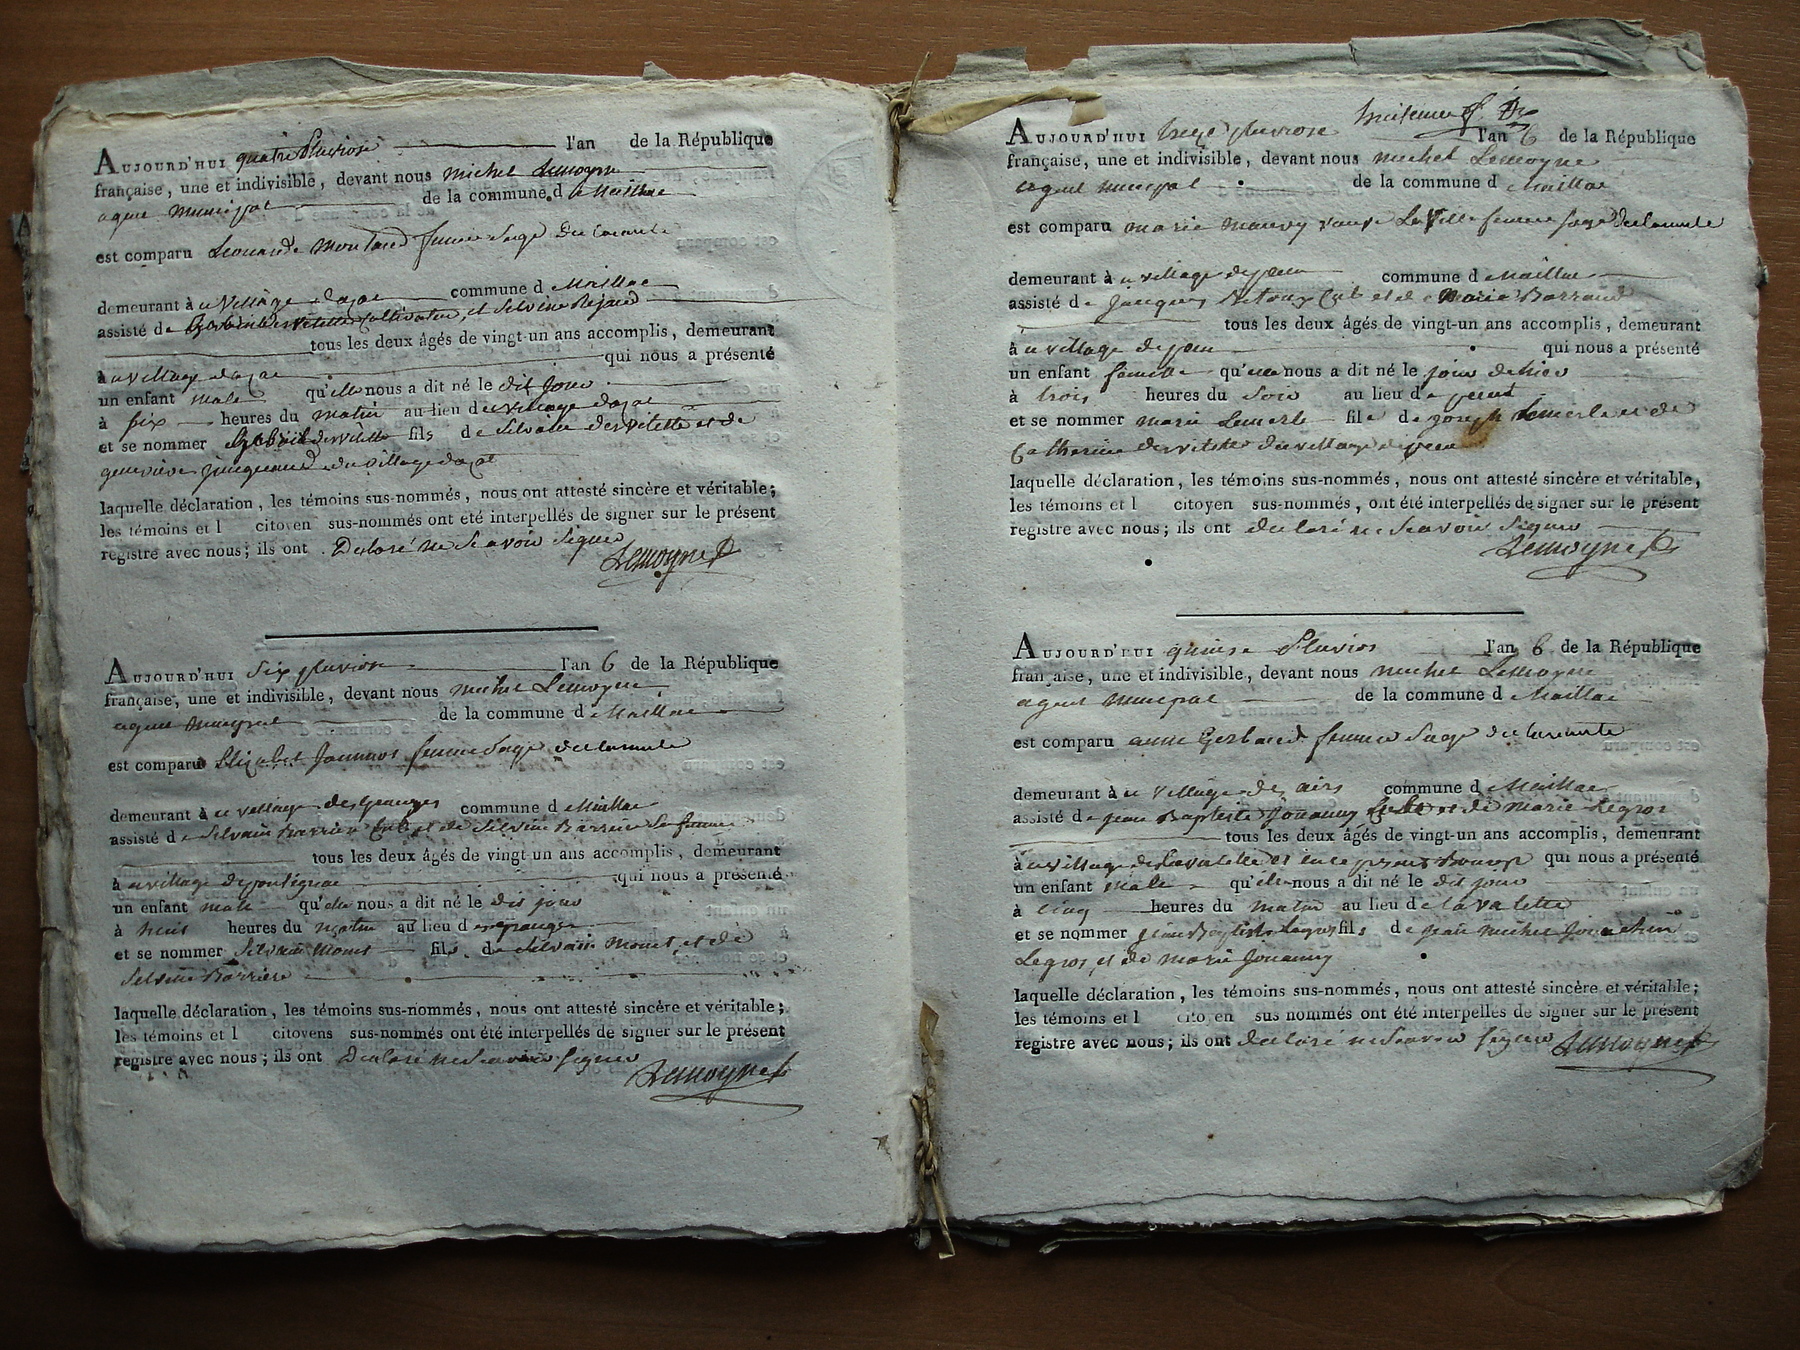 Aujourd'hui quatre Pluviose l'an de la République
française, une et indivisible, devant nous michel Lemoyne
agent municipal de la commune d e Maillac
est comparu Leonarde montaud femme Sage
demeurant à u Village dazac commune d Maillac
assisté de Gabriel desvilettes Cultivateur, et Silvine Rejaud
tous les deux âgés de vingt-un ans accomplis, demeurant
à u village dazac qui nous a présenté
un enfant male qu'elle nous a dit né le dit jour
à six heures du matin au lieu du village dazac
et se nommer Gabriel desvilette fils de Silvain desvilette et de
genevieve du village dazac
laquelle déclaration, les témoins sus-nommés, nous ont attesté sincère et véritable;
les témoins et l citoyen sus-nommés ont été interpellés de signer sur le présent
registre avec nous; ils ont Declaré ne Scavoir Signer
Lemoyne
Aujourd'hui Six pluviose l'an 6 de la République
française, une et indivisible, devant nous michel Lemoyne
agent municipal de la commune d Maillac
est comparu Elizabet femme Sage
demeurant à u village des Granges commune d Maillac
assisté de Silvain Barriere Cult et de Silvine Barriere Sa femme
tous les deux âgés de vingt-un ans accomplis, demeurant
à u village de qui nous a présenté
un enfant male qu'elle nous a dit né le dit jour
à huit heures du matin au lieu des granges
et se nommer Silvain fils de Silvain et de
Silvine Barriere
laquelle déclaration, les témoins sus-nommés, nous ont attesté sincère et véritable;
les témoins et l citoyens sus-nommés ont été interpellés de signer sur le présent
registre avec nous; ils ont Declaré ne Scavoir Signer
Lemoyne
huitieme f.
Aujourd'hui treize pluviose l'an 6 de la République
française, une et indivisible, devant nous michel Lemoyne
agent municipal de la commune d Maillac
est comparu marie mauvy femme sage
demeurant à u village de commune d Maillac
assisté de Jacques Cult et de Marie Barraud
tous les deux âgés de vingt-un ans accomplis, demeurant
à u village de qui nous a présenté
un enfant femelle qu'elle nous a dit né le jour dehier
à trois heures du Soir au lieu de
et se nommer marie Lemerle file de joseph Lemerle et de
Catherine desvilettes du village de
laquelle déclaration, les témoins sus-nommés, nous ont attesté sincère et véritable,
les témoins et l citoyen sus-nommés, ont été interpellés de signer sur le présent
registre avec nous; ils ont declaré ne Scavoir Signer
Lemoyne
Aujourd'hui quinse Pluvios l'an 6 de la République
française, une et indivisible, devant nous michel Lemoyne
agent municipal de la commune d Maillac
est comparu anne Gerbaud femme Sage
demeurant à u village des airs commune d Maillac
assisté de jean Baptiste Jouanny et de marie Legros
tous les deux âgés de vingt-un ans accomplis, demeurant
à u village de Lavalette qui nous a présenté
un enfant male qu'elle nous a dit né le dit jour
à cinq heures du matin au lieu de lavalette
et se nommer jean Baptiste Legros fils de jean michel
Legros et de marie Jouanny
laquelle déclaration, les témoins sus-nommés, nous ont attesté sincère et véritable;
les témoins et l citoyen sus nommés ont été interpellés de signer sur le présent
registre avec nous; ils ont declaré ne Scavoir signer Lemoyne